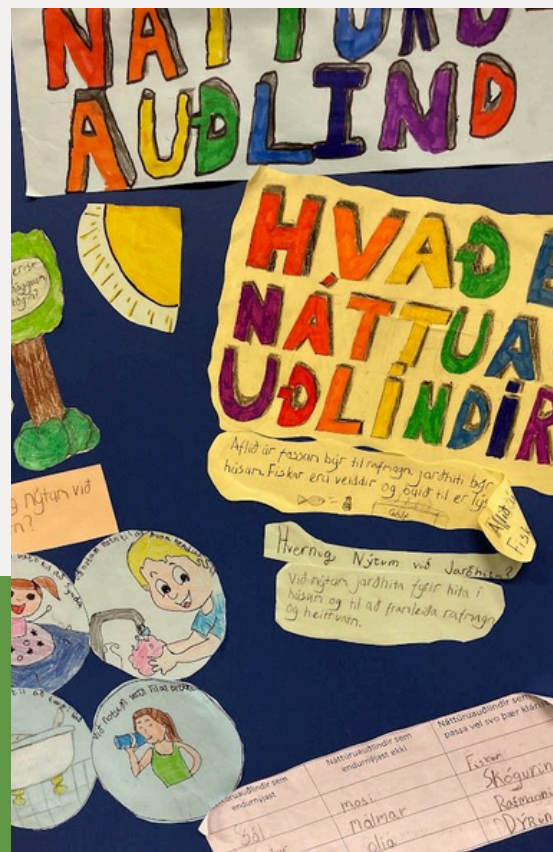 NÁTTÚRU-
AUÐLIND
HVAÐ E
NÁTTUA
UÐLÍNDÍR
Aflið úr fossum býr til rafmagn jarðhiti býr
húsum. Fiskar eru veiddir og búið til er lýs
Aflið
Fisk
Hvernig Nýtum við Jarðhita?
Við nýtum jarðhita fyrir hita í
húsum og til að framleiða rafmagn
og heittvatn.
g nýtum við
n?
Við notum vatn til að drekka
Náttúruauðlindir sem
endurnýjast
Náttúruauðlindir sem
endurnýjast ekki
Náttúruauðlindir sem
passa vel svo þær klári
Sól
mosi
Málmar
olía
Fiskar
Skógurin
Rafmagni
Dýrin